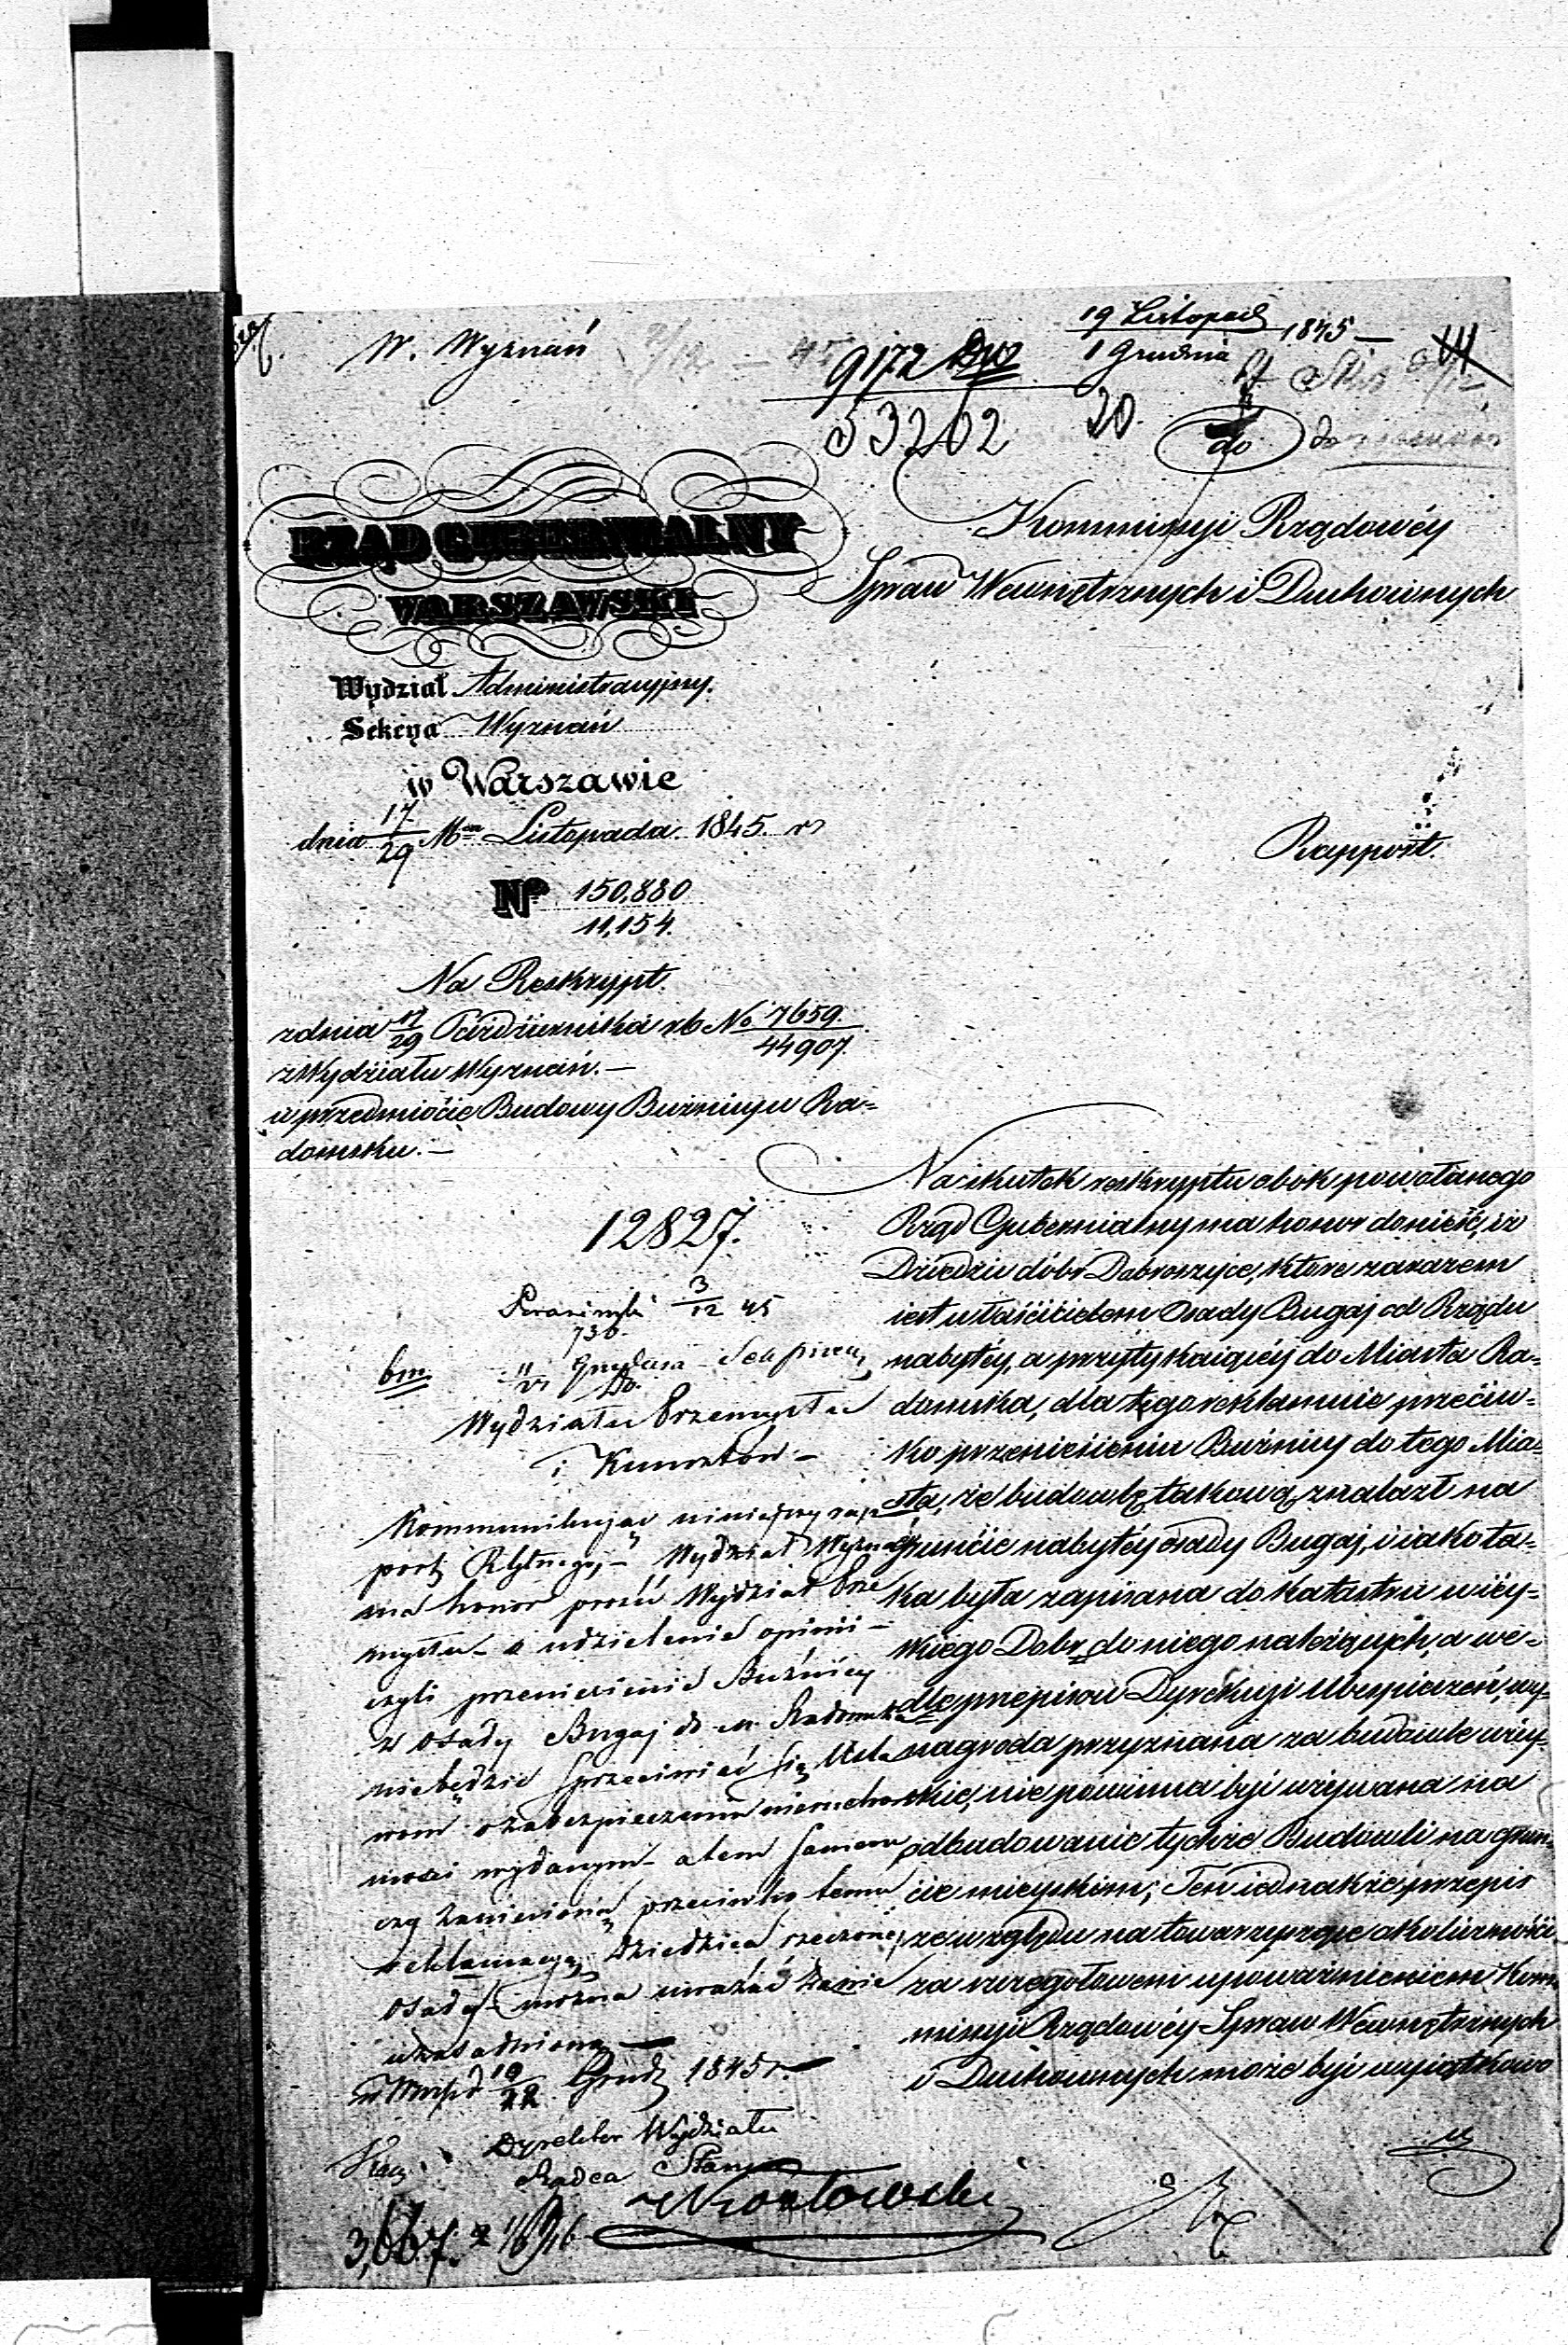 W. Wyznań
19 Listopad
1 Grudnia 1845 —
9172
53202
20.
do
Kommissyi Rządowéy
Spraw Wewnętrznych i Duchownych
RZĄD GUBERNIALNY
WARSZAWSKI
Wydział Administracyjny.
Sekcya Wyznań
w Warszawie
dnia 17/29 Mca Listopada 1845 r
No 150,880
11,154.
Rapport.
Na Reskrypt.
z dnia 17/29 Października rb No 7659.
44907.
z Wydziału Wyznań. —
w przedmiocie Budowy Bużnicy w Ra=
domsku. —
Na skutek reskryptu obok powołanego
Rząd Gubernialny ma honor donieść, iż
Dziedzic dóbr Dobroszyce, które zarazem
iest właścicielem Osady Bugaj od Rządu
nabytéy, a przytykaiącéy do Miasta Ra=
domska, dla tego reklamuie przeciw=
ko przeniesieniu Bużnicy do tego Mia=
sta, że budowlę takową znalazł na
gruncie nabytéy osady Bugaj, i iako ta=
ka była zapisana do Katastru wiey=
skiego Dobr do niego należących, a we=
dle przepisu Dyrekcyi Ubezpieczeń, wy=
nagroda przyznana za budowle wiey=
skie, nie powinna być używana na
odbudowanie tychże Budowli na grun=
cie mieyskim; Ten iednakże przepis
ze względu na towarzyszące okoliczności
za szczegółowem upoważnieniem Kom=
missyi Rządowéy Spraw Wewnętrznych
i Duchownych może być wyiątkowo
12827.
3/12 45
736.
bm.
Do
Wydziału Przemysłu
i Kunsztów —
Kommunikując niniejszy rap
port Wydział Wyznań
ma honor prosić Wydział Prze
mysłu o udzielenie opinii —
czyli przeniesienie Bużnicy
z osady Bugaj do m. Radomska
niebędzie sprzeciwiać się Usta
wom o zabezpieczeniu nierucho
mości wydanym a tem samem
czy zaniesioną przeciwko temu
reklamacyą Dziedzica rzeczonej
osady można uważać za nie
uzasadnioną —
10/22 Grud 1845 r. —
Dyrektor Wydziału
Radca Stanu
Kozłowski